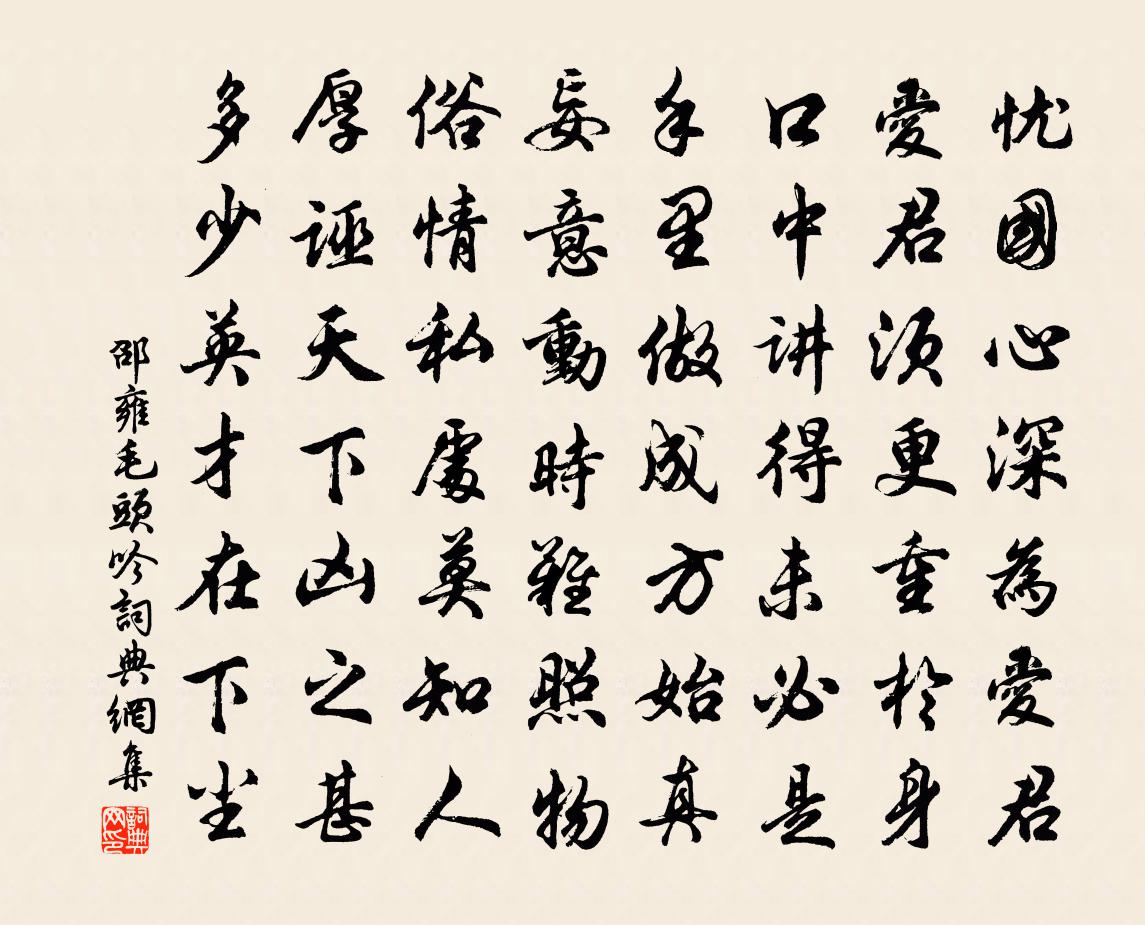 忧國心深為愛君
愛君須更重於身
口中讲得未必是
手里做成方始真
妄意動時難照物
俗情私處莫知人
厚誣天下凶之甚
多少英才在下尘
邵雍毛頭吟詞典網集
詞典网印